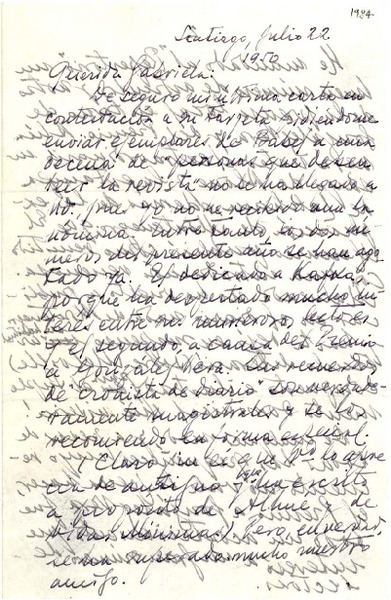 1924
Santiago, Julio 22
1950
Querida Gabriela:
De seguro mi última carta en
contestación a su tarjeta pidiéndome
enviar ejemplares de "Babel" a una
decena de "personas que desean
leer la revista" no se ha llegado a
Ud., pues yo no he recibido aún la
nómina. Entre tanto los dos nú-
meros del presente año se han ago-
tado ya. El dedicado a Kafka,
porque ha despertado mucho in-
terés entre los numerosos lectores
y el segundo, a causa del Premio
a González Vera. Sus recuerdos
de cronista de "diario" son verdade-
ramente magistrales y se los
recomiendo en forma especial.
(Claro está que Ud. lo apre-
cia de antiguo y ha escrito
a propósito de Alhué y de
Vidas Mínimas.) Pero en verdad,
se ha superado mucho nuestro
amigo.